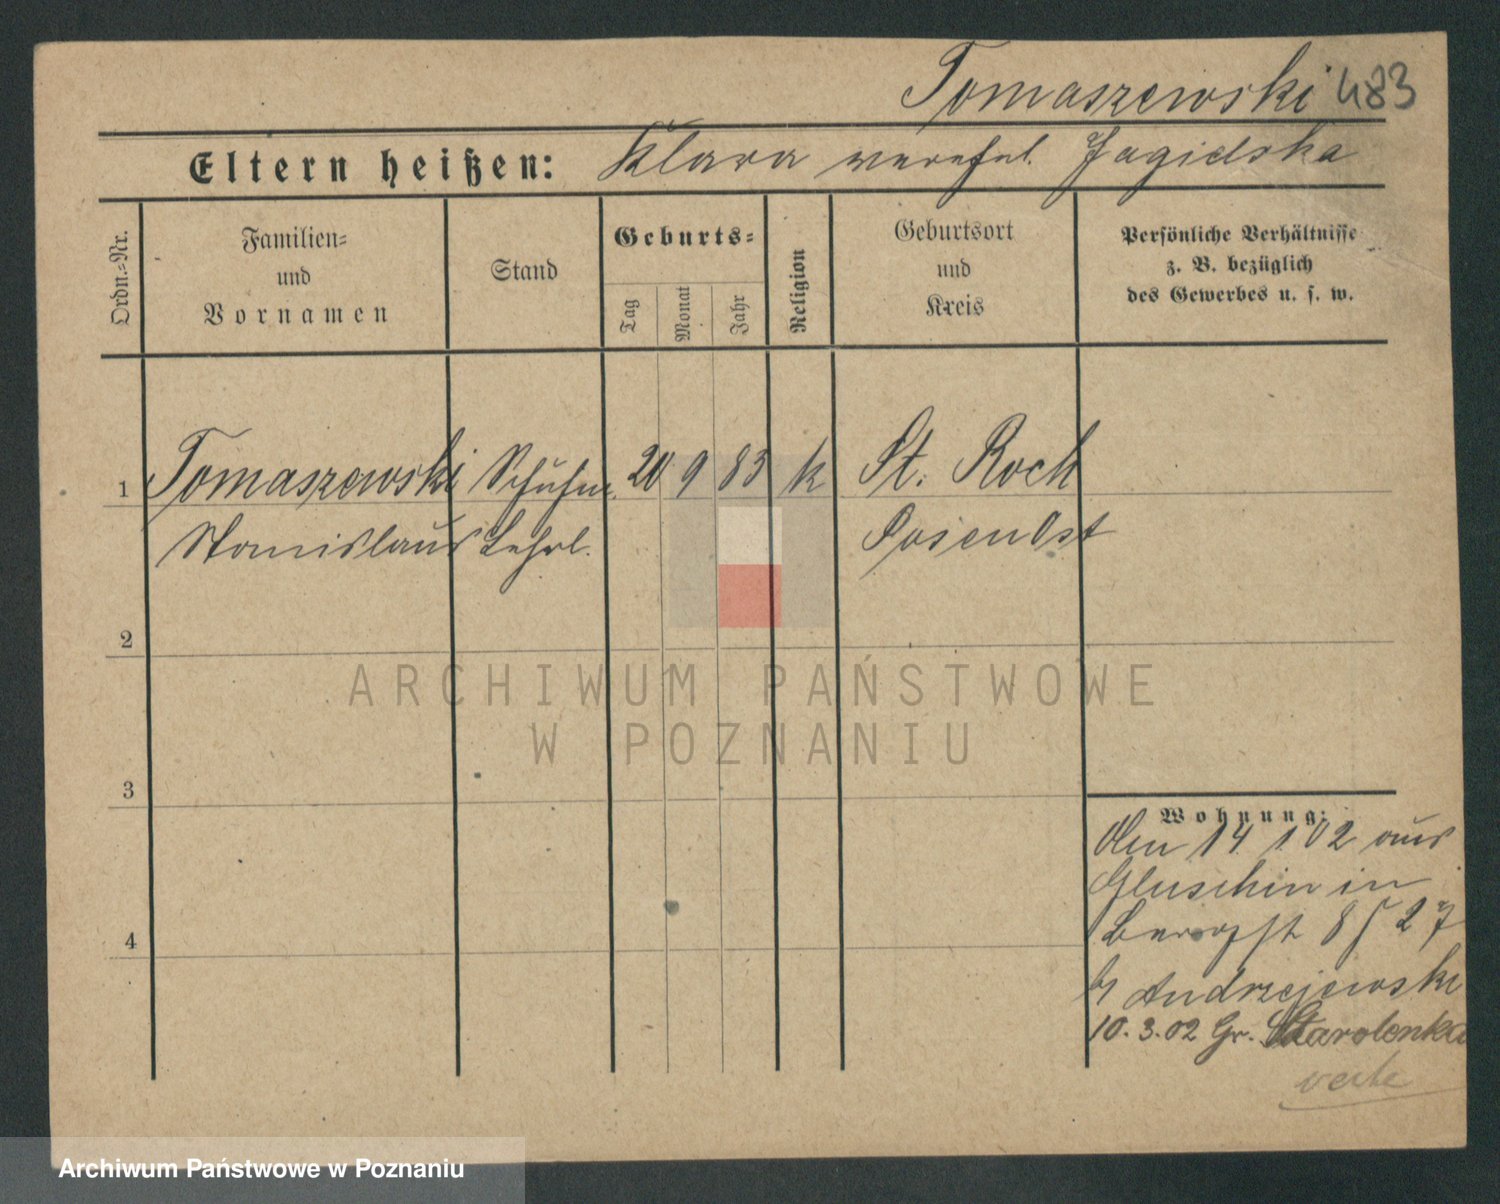 Tomaszewski 483
Eltern heißen: Klara verehel. Jagielska
Ordn.=Nr.
Familien=
und
Vornamen
Stand
Geburts=
Tag
Monat
Jahr
Religion
Geburtsort
und
Kreis
Persönliche Verhältnisse
z. B. bezüglich
des Gewerbes u. s. w.
1 Tomaszewski Schuhm. 20 9 83 k St. Roch
Stanislaus Lehrl. Posen Ost
2
ARCHIWUM PAŃSTWOWE
W POZNANIU
3
4
Wohnung:
Den 14 1 02 aus
Gluschin in
8 27
Andrzejewski
10. 3. 02 Gr. Starolenka
verte
Archiwum Państwowe w Poznaniu